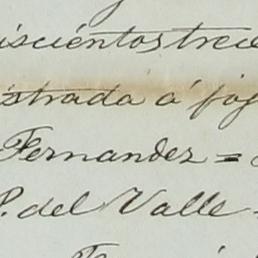 iscientos trece
istrada á foj
Fernandez =
P. del Valle